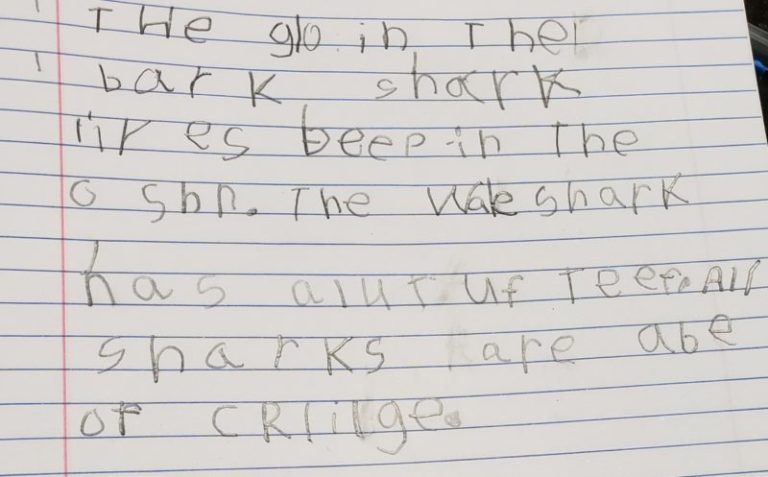 THe glo in The
bark shark
lires beep in The
o shn. The wale shark
has alut uf Teef. All
sharks are abe
of CRlilge.